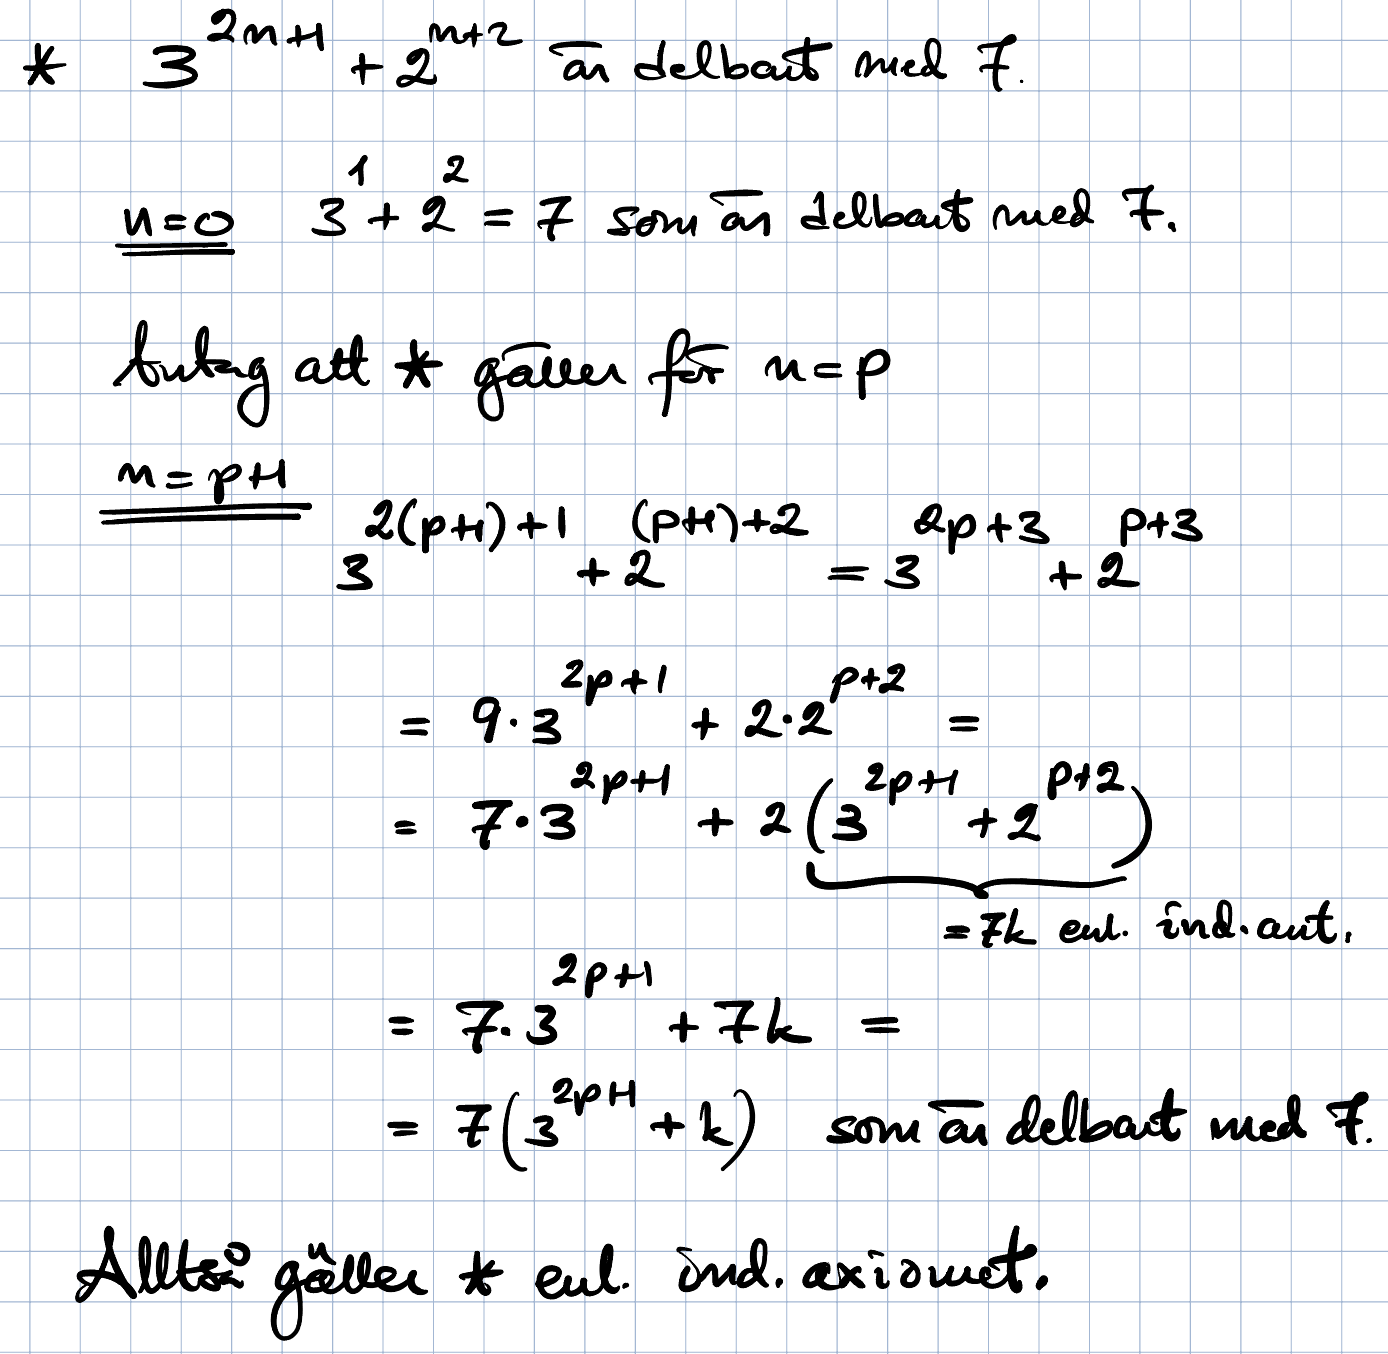 * 3^{2n+1} + 2^{n+2} är delbart med 7.
n=0 3^1 + 2^2 = 7 som är delbart med 7.
Antag att * gäller för n=p
n=p+1
3^{2(p+1)+1} + 2^{(p+1)+2} = 3^{2p+3} + 2^{p+3}
= 9·3^{2p+1} + 2·2^{p+2} =
= 7·3^{2p+1} + 2(3^{2p+1} + 2^{p+2})
=7k enl. ind.ant.
= 7·3^{2p+1} + 7k =
= 7(3^{2p+1} + k) som är delbart med 7.
Alltså gäller * enl. ind. axiomet.